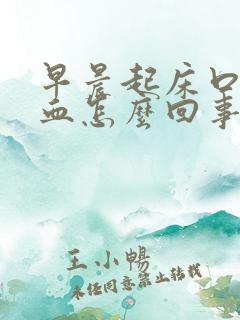 早晨起床口
血怎麼回事
王小暢
未经同意禁止转载